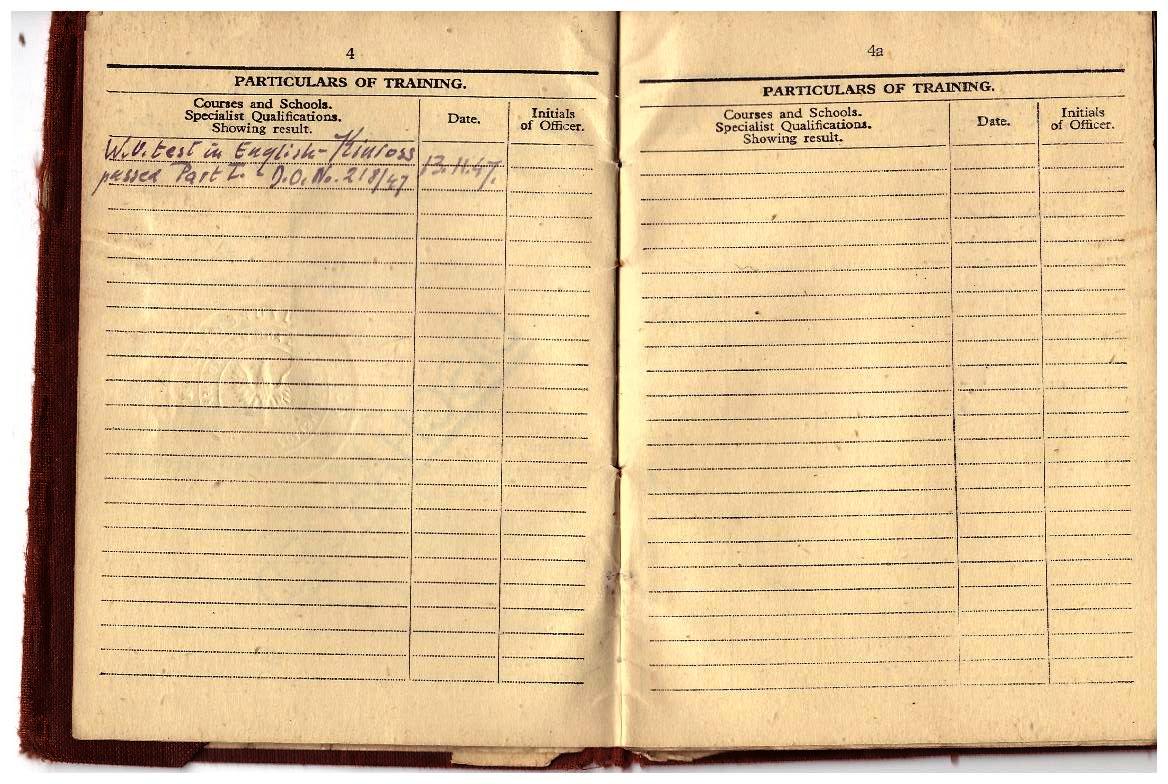 4
PARTICULARS OF TRAINING.
Courses and Schools.
Specialist Qualifications.
Showing result.
Date.
Initials
of Officer.
W.O. test in English - Kinloss
passed Part I. D.O. No. 218/47
13.11.47.
4a
PARTICULARS OF TRAINING.
Courses and Schools.
Specialist Qualifications.
Showing result.
Date.
Initials
of Officer.